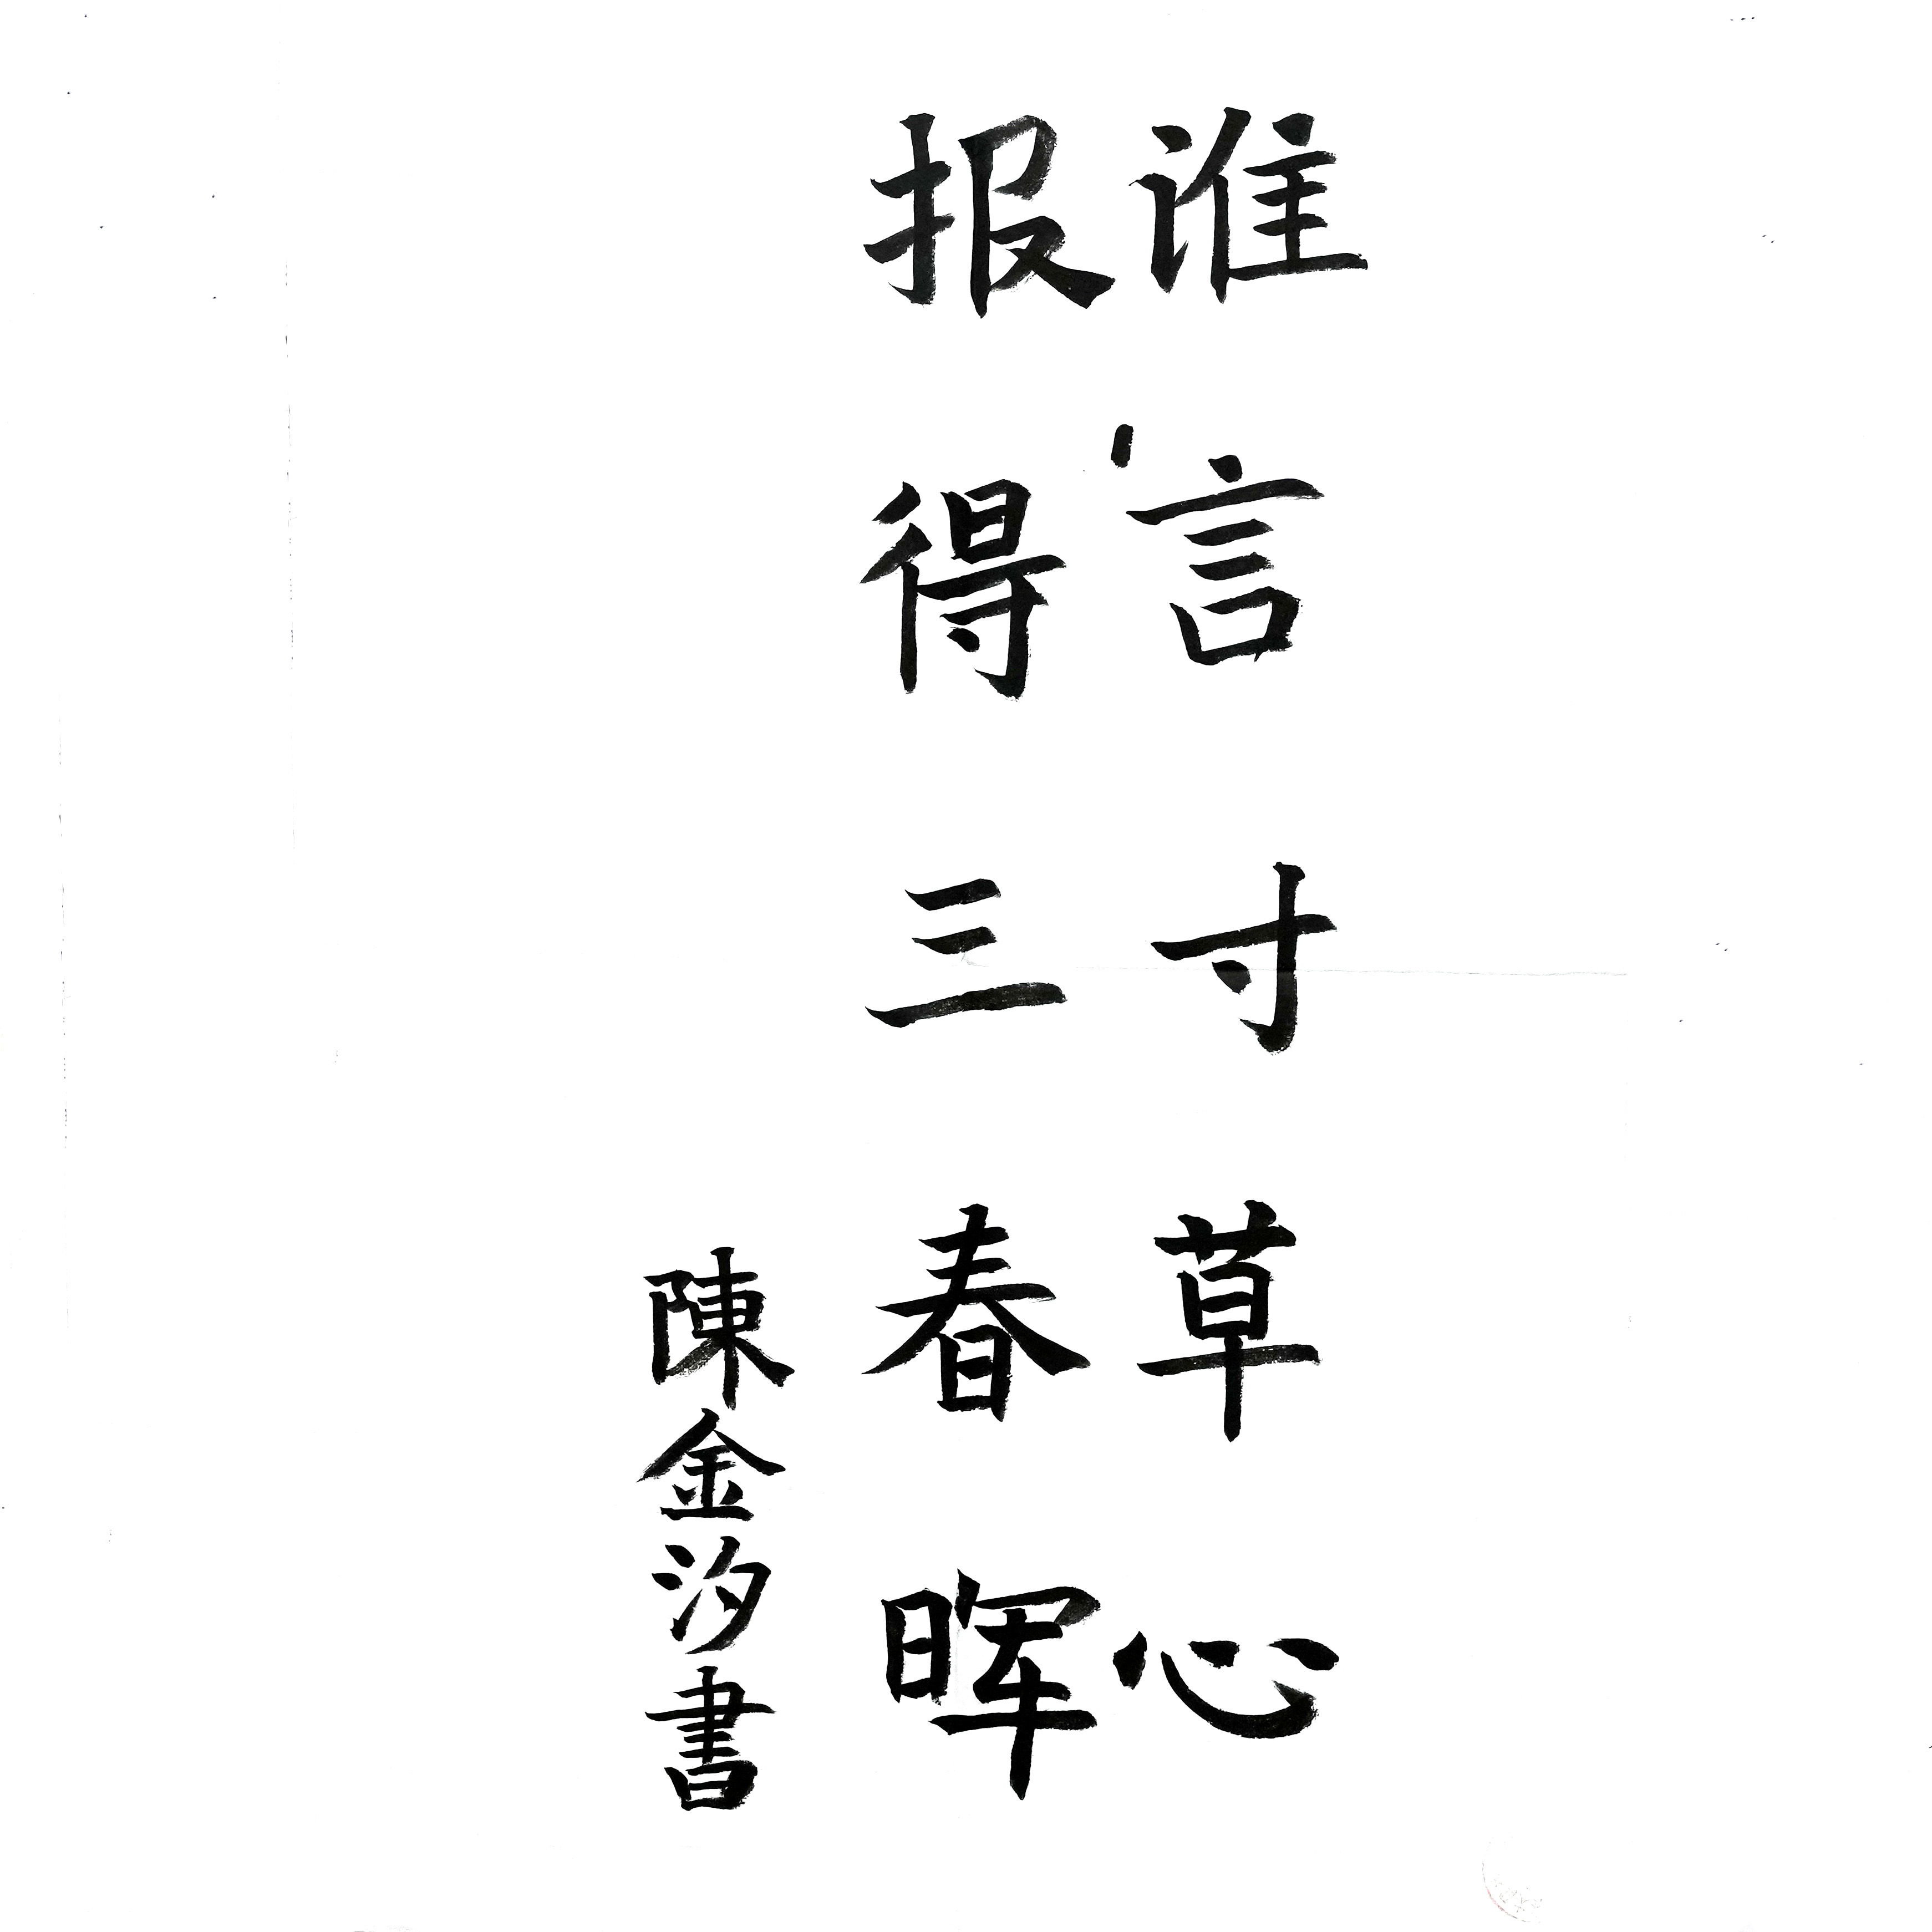 谁言寸草心
报得三春晖
陳金汐書